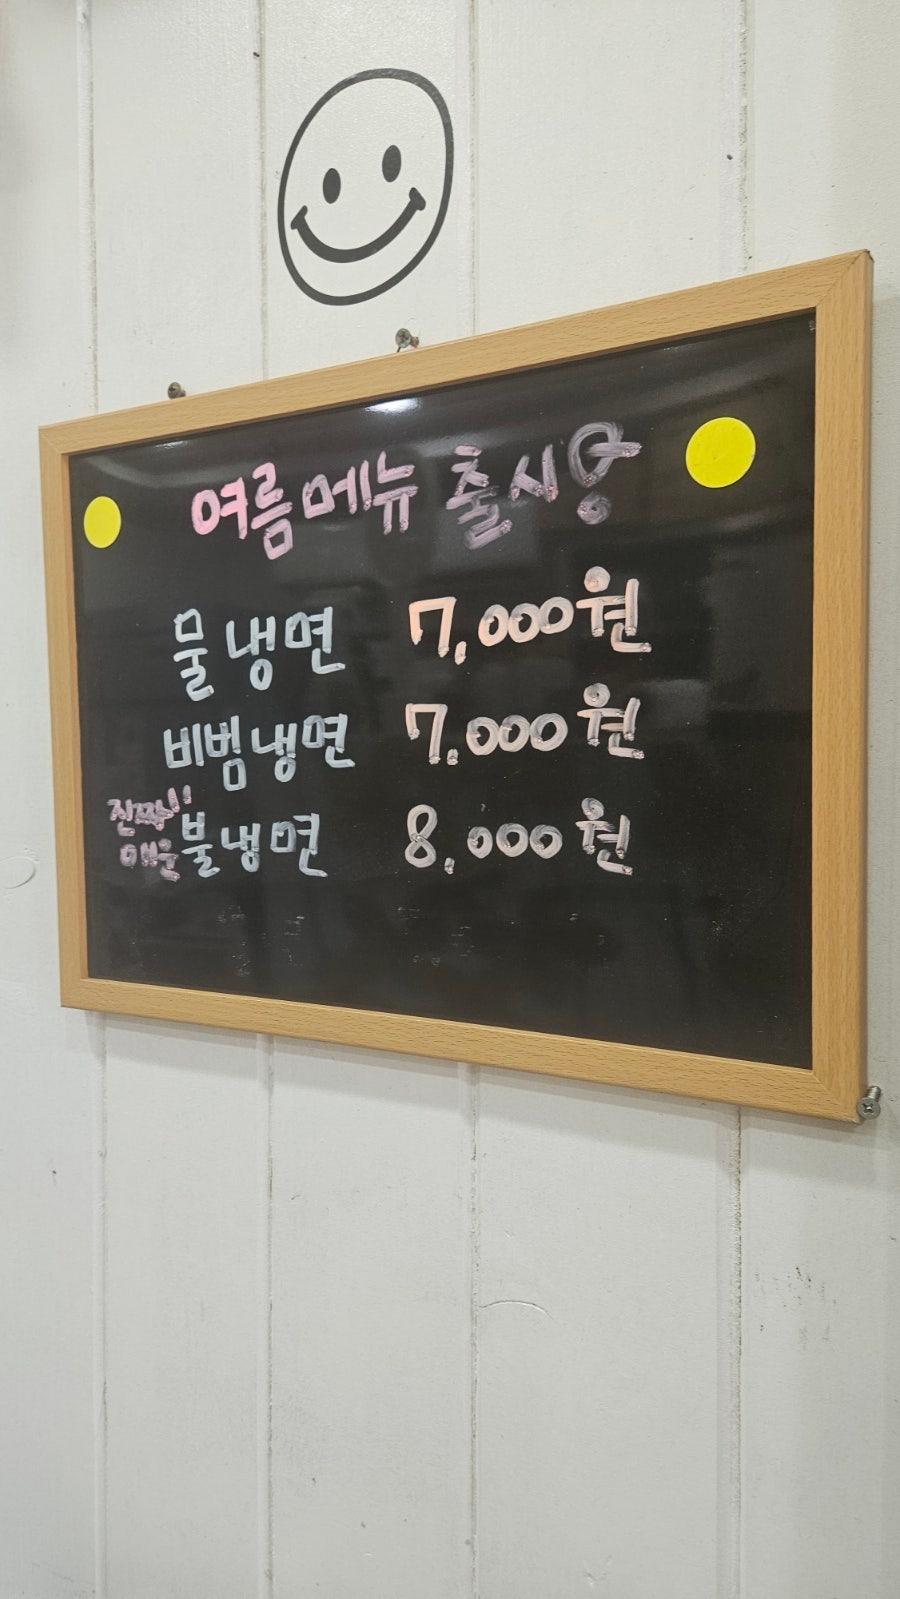 여름메뉴 출시당
물냉면 7,000원
비빔냉면 7,000원
진짜!! 매운 불냉면 8,000원